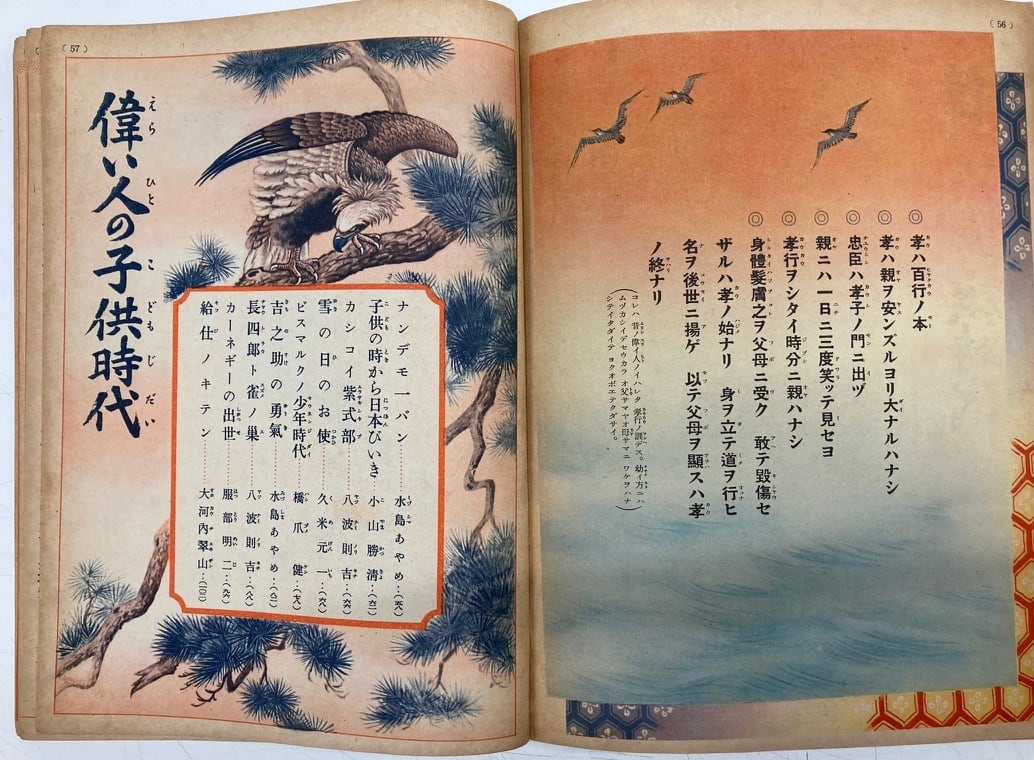 (56)
◎ 孝ハ百行ノ本
◎ 孝ハ親ヲ安ンズルヨリ大ナルハナシ
◎ 忠臣ハ孝子ノ門ニ出ヅ
◎ 親ニハ一日ニ三度笑ッテ見セヨ
◎ 孝行ヲシタイ時分ニ親ハナシ
◎ 身體髮膚之ヲ父母ニ受ク 敢テ毀傷セ
ザルハ孝ノ始ナリ 身ヲ立テ道ヲ行ヒ
名ヲ後世ニ揚ゲ 以テ父母ヲ顯スハ孝
ノ終ナリ
(コレハ 昔ノ偉イ人ノイハレタ 孝行ノ訓デス。幼イ方ニハ
ムヅカシイデセウカラ オ父サマヤオ母サマニ ワケヲハナ
シテイタダイテ ヨクオボエテクダサイ。)
(57)
偉い人の子供時代
えらひとこどもじだい
ナンデモ一バン……水島あやめ…(五八)
子供の時から日本びいき……小山勝淸…(六二)
カシコイ紫式部……八波則吉…(六六)
雪の日のお使……久米元一…(六八)
ビスマルクノ少年時代……橋爪健…(七八)
吉之助の勇氣……水島あやめ…(八二)
長四郎ト雀ノ巢……八波則吉…(八八)
カーネギーの出世……服部明二…(九六)
給仕ノキテン……大河內翠山…(一〇二)